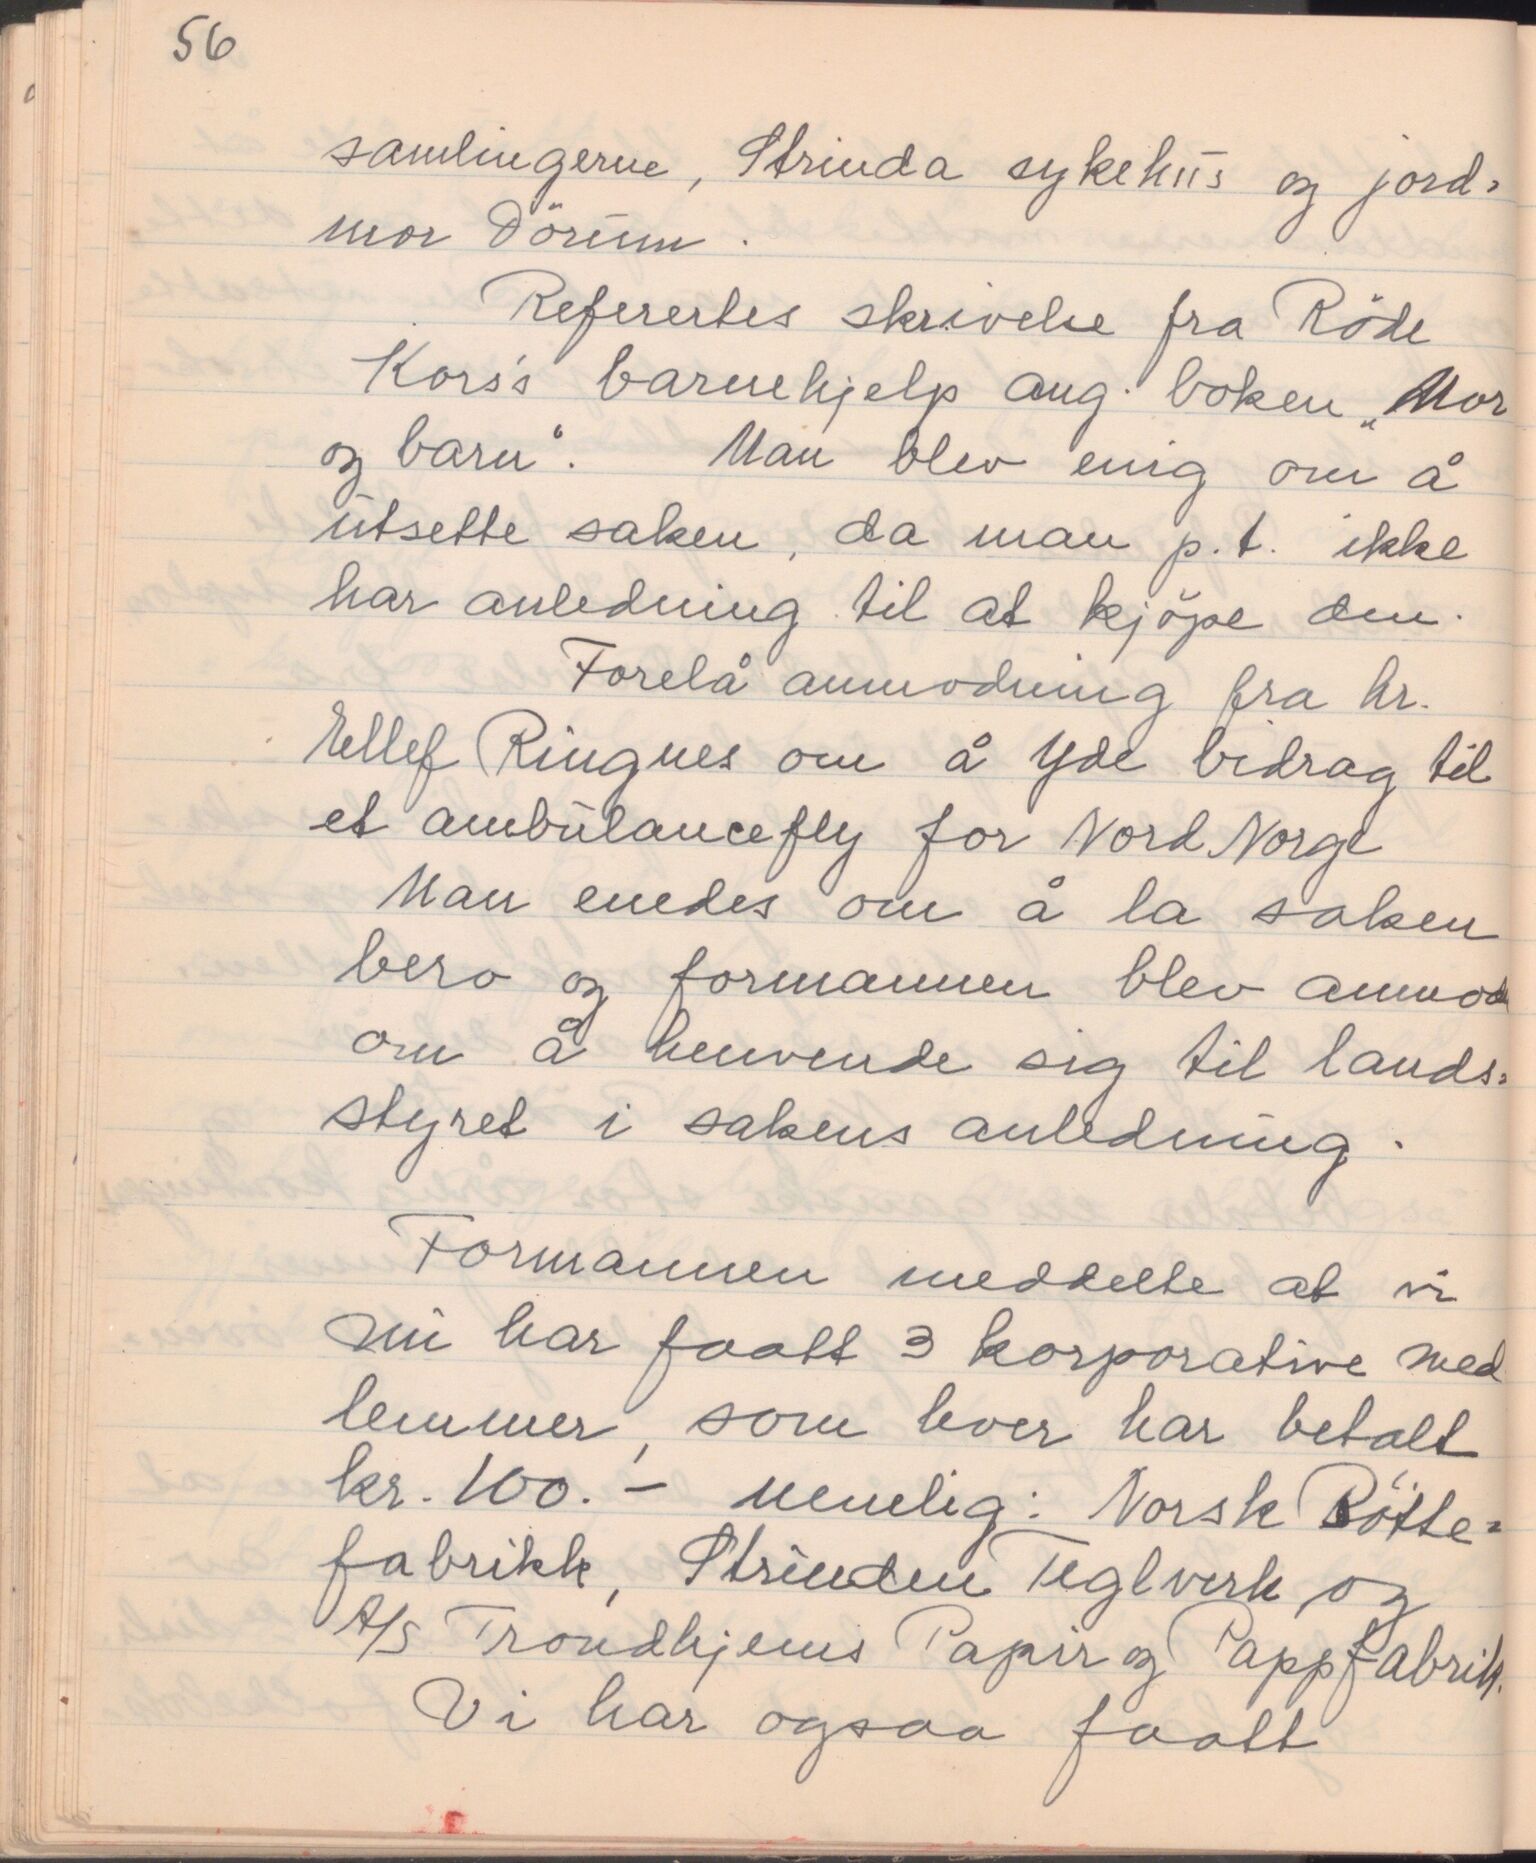 56
samlingerne, Strinda sykehus og jord=
mor Dörum.
Referertes skrivelse fra Röde
Kors's barnehjelp ang. boken „Mor
og barn“. Man blev enig om å
utsette saken, da man p.t. ikke
har anledning til at kjöpe den.
Forelå anmodning fra hr.
Ellef Ringnes om å yde bidrag til
et ambulancefly for Nord Norge
Man enedes om å la saken
bero og formannen blev anmod
om å henvende sig til lands=
styret i sakens anledning.
Formannen meddelte at vi
nu har faatt 3 korporative med
lemmer, som hver har betalt
kr. 100.- nemelig: Norsk Bötte=
fabrikk, Strinden Teglverk og
A/S Trondhjems Papir og Pappfabrik.
Vi har ogsaa faatt